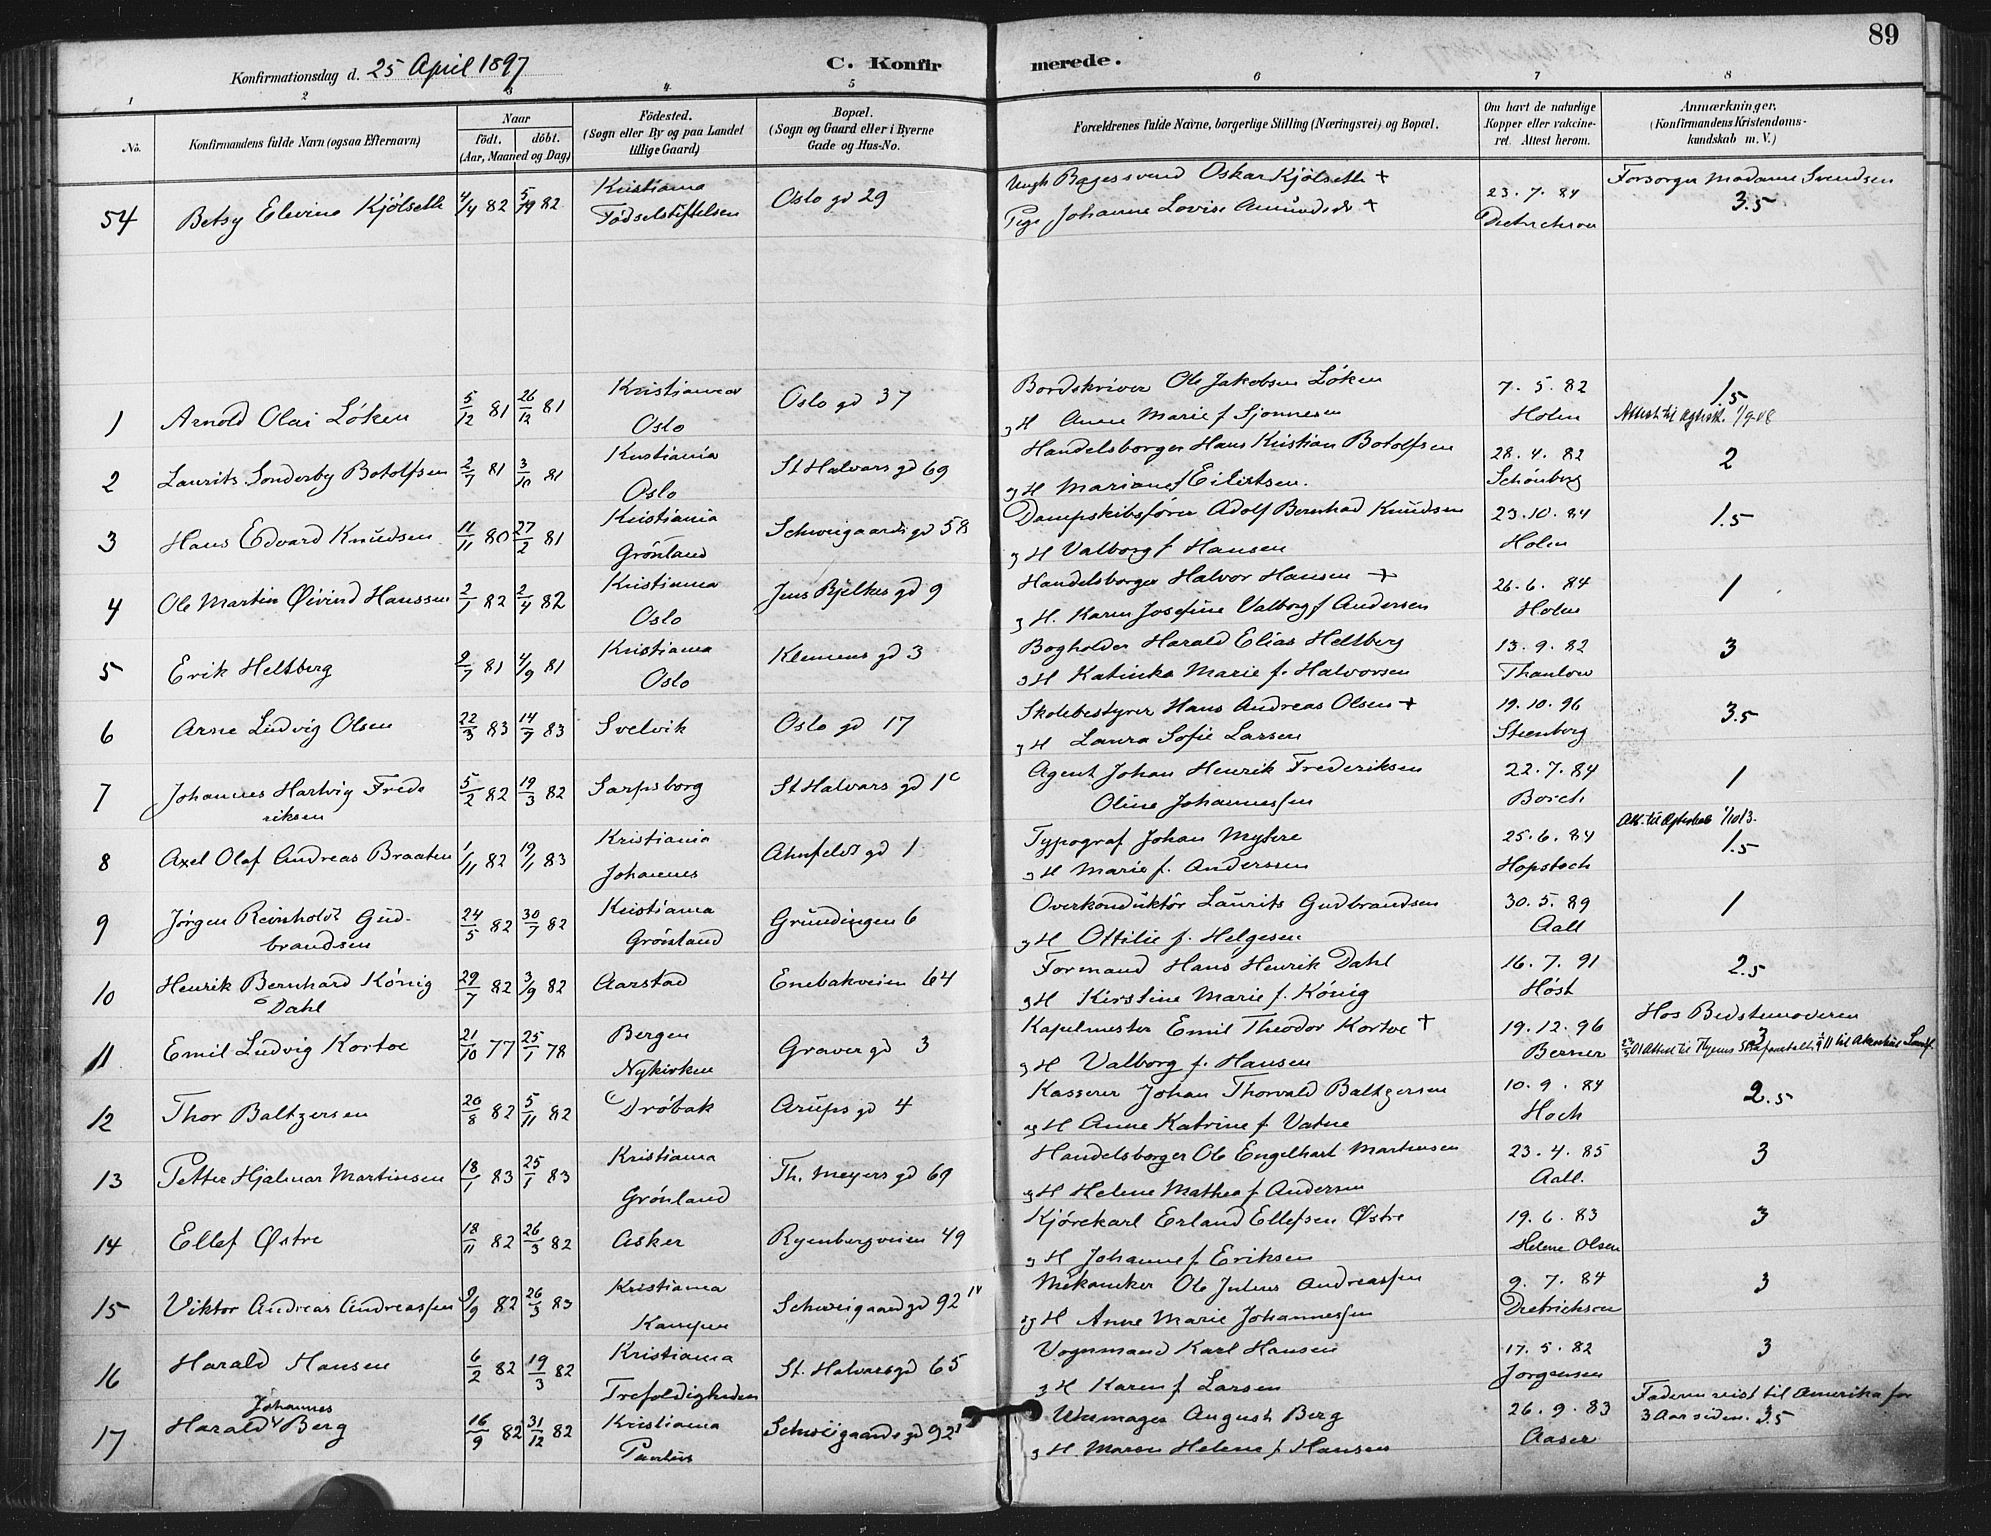 89
Konfirmationsdag d. 25 April 1897 C. Konfirmerede.
1 2 3 4 5 6 7 8
No. Konfirmandens fulde Navn (ogsaa Efternavn) Naar født. døbt. (Aar, Maaned og Dag) Födested. (Sogn eller By og paa Landet tillige Gaard.) Bopæl. (Sogn og Gaard eller i Byerne Gade og Hus-No. Forældrenes fulde Navne, borgerlige Stilling (Næringsvei) og Bopæl. Om havt de naturlige Kopper eller vakcineret. Attest herom. Anmærkninger. (Konfirmandens Kristendomskundskab m. V.)
54 Betsy Elevine Kjölseth 4/4 82 5/19 82 Kristiania Födselstiftelsen Oslo gd 29 Ungk Bagersvend Oskar Kjölseth + Pige Johanne Lovise Amundsdr + 23.7.84 Dietrichson Forsørger Madame Svendsen 3.5
1 Arnold Olai Löken 5/12 81 26/12 81 Kristiania Oslo Oslo gd 37 Bordskriver Ole Jakobsen Löken og H Anne Marie f. Sjonnesen 7.5.82 Holm 1.5 Attest til Ægtesk. 1/9-08
2 Laurits Sonderby Botolfsen 2/7 81 3/10 81 Kristiania Oslo St Halvars gd 69 Handelsborger Hans Kristian Botolfsen og H Mariane f Eilertsen. 28.4.82 Schönberg 2
3 Hans Edvard Knudsen 11/11 80 27/2 81 Kristiania Grönland Schweigaards gd 58 Dampskibsförer Adolf Bernhad Knudsen og H Valborg f Hansen 23.10.84 Holm 1.5
4 Ole Martin Øivind Hanssen 2/1 82 2/4 82 Kristiania Oslo Jens Bjelkes gd 9 Handelsborger Halvor Hansen + og H. Karen Josefine Valborg f Andersen 26.6.84 Holm 1
5 Erik Heltberg 9/7 81 4/9 81 Kristiania Oslo Klemens gd 3 Bogholder Harald Elias Heltberg og H Katinka Marie f. Halvorsen 13.9.82 Thaulow 3
6 Arne Ludvig Olsen 22/3 83 14/7 83 Svelvik Oslo gd 17 Skolebestyrer Hans Andreas Olsen + og H Laura Sofie Larsen 19.10.96 Steenberg 3.5
7 Johannes Hartvig Frederiksen 5/2 82 19/3 82 Sarpsborg St Halvars gd 1c Agent Johan Henrik Frederiksen Oline Johannessen 22.7.84 Borch 1
8 Axel Olaf Andreas Braaten 1/11 82 19/1 83 Kristiania Johannes Ahnfeldt gd 1 Typograf Johan Myhre og H Marie f. Anderssen 25.6.84 Hopstock Att. til Ægteskab 1/10 13. 1.5
9 Jörgen Reinholdt Gudbrandsen 24/5 82 30/7 82 Kristiania Grönland Gründingen 6 Overkonduktör Laurits Gudbrandsen og H Ottilie f. Helgesen 30.5.89 Aall 1
10 Henrik Bernhard König Dahl 29/7 82 3/9 82 Aarstad Enebakveien 64 Formand Hans Henrik Dahl og H Kirstine Marie f. König 16.7.91 Höst 2.5
11 Emil Ludvig Kortoe 21/10 77 25/1 78 Bergen Nykirken Graver gd 3 Kapelmester Emil Theodor Kortoe + og H Valborg f. Hansen 19.12.96 Berner Hos Bedstemoderen 3
12 Thor Baltzersen 20/8 82 5/11 82 Dröbak Arups gd 4 Kasserer Johan Thorvald Baltzersen og H Anne Katrine f Vatne 10.9.84 Hoch 2.5
13 Petter Hjalmar Martinsen 18/1 83 25/1 83 Kristiania Grönland Th. Meyers gd 69 Handelsborger Ole Engelhart Martinsen og H Helene Mathea f Andersen 23.4.85 Aall. 3
14 Ellef Østre 18/11 82 26/3 82 Asker Ryenbergveien 49 Kjörekarl Erland Ellefsen Østre og H Johanne f Eriksen 19.6.83 Helene Olsen 3
15 Viktor Andreas Andreassen 9/9 82 26/3 83 Kristiania Kampen Schweigaard gd 92 IV Mekaniker Ole Julius Andreassen og H Anne Marie Johannessen 9.7.84 Dietrichson 3
16 Harald Hansen 6/2 82 19/3 82 Kristiania Trefoldigheden St. Halvarsgd 65 Vognmand Karl Hansen og H Karen f Larsen 17.5.82 Jorgensen 3
17 Harald Johannes Berg 16/9 82 31/12 82 Kristiania Paulus Schweigaards gd 92 Urmager August Berg og H. Maren Helene f Hansen 26.9.83 Aaser Faderen reist til Amerika for 3 Aar siden. 3.5